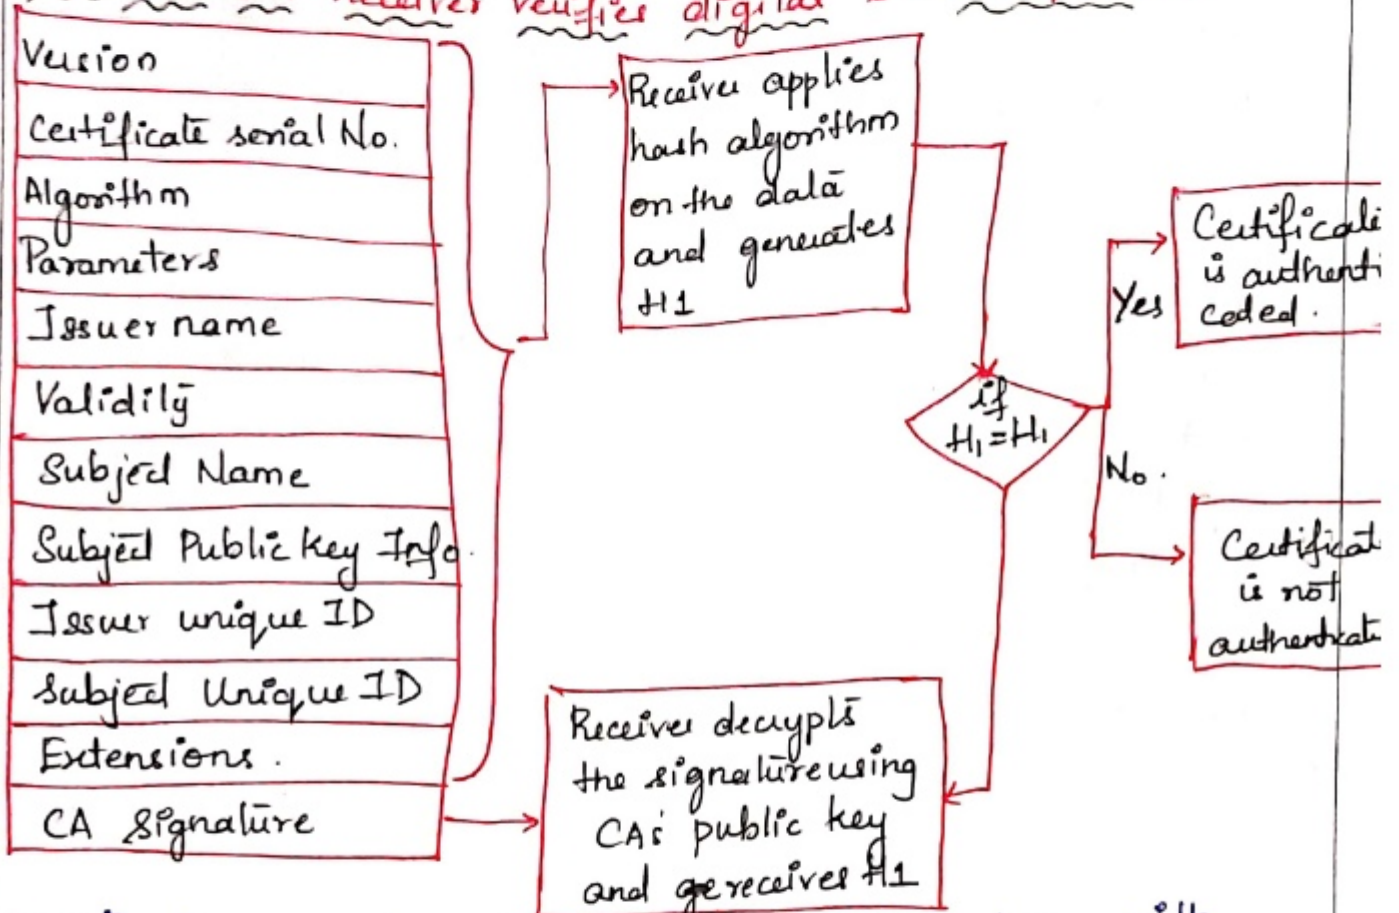 Receiver verifies digital
Version
Certificate serial No.
Algorithm
Parameters
Issuer name
Validity
Subject Name
Subject Public key Info.
Issuer unique ID
Subject Unique ID
Extensions.
CA Signature
Receiver applies
hash algorithm
on the data
and generates
H1
if
H1=H1
Yes
No.
Certificate
is authenti
cated.
Certificat
is not
authenticate
Receiver decrypts
the signature using
CAs' public key
and receives H1